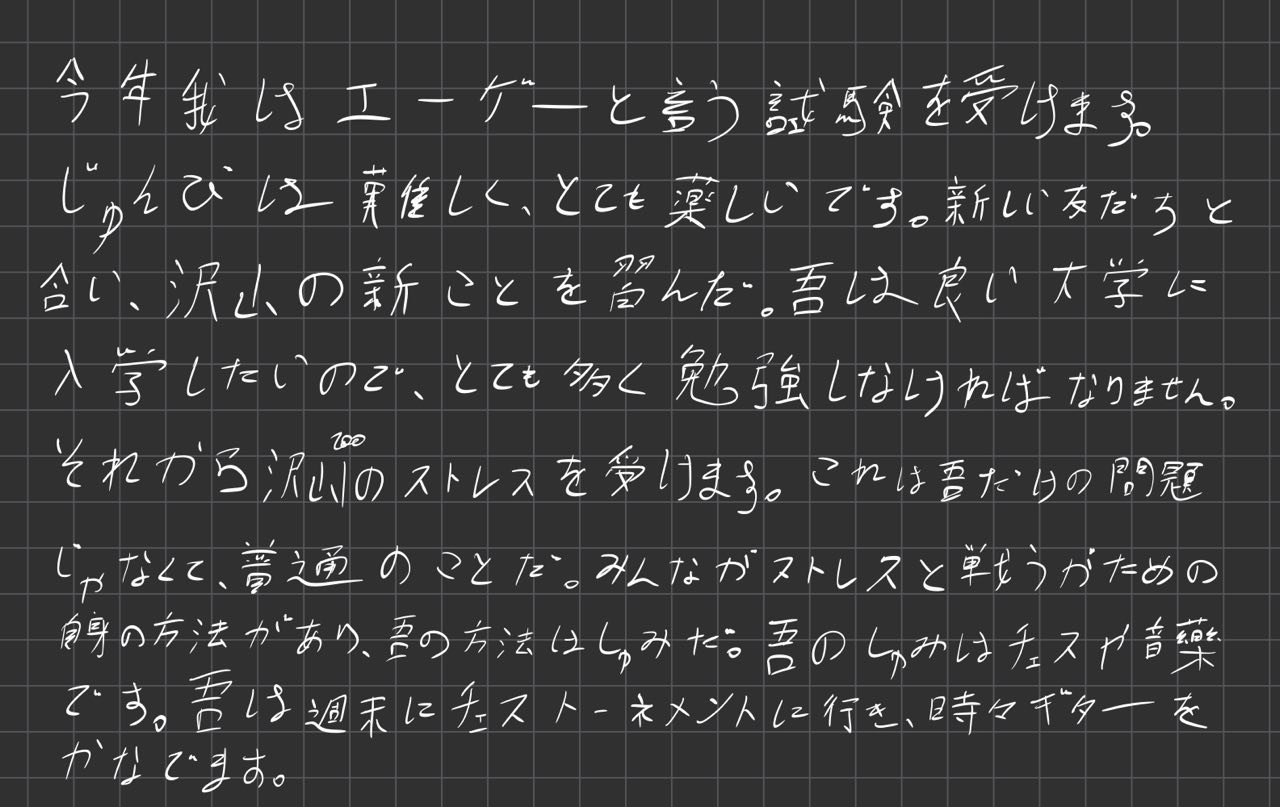 今年我はエーゲーと言う試験を受けます。
じゅんびは難しく、とても楽しいです。新しい友だちと
合い、沢山の新ことを習んだ。吾は良い大学に
入学したいので、とても多く勉強しなければなりません。
それから沢山のストレスを受けます。これは吾だけの問題
じゃなくて、普通のことだ。みんながストレスと戦うがための
自身の方法があり、吾の方法はしゅみだ。吾のしゅみはチェスや音藥
です。吾は週末にチェストーネメントに行き、時々ギターを
かなでます。